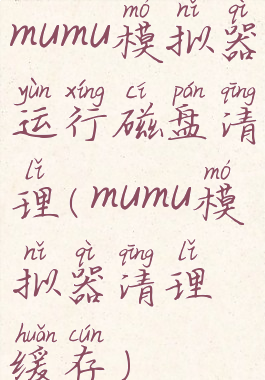 mó nǐ qì
mumu模拟器
yùn xíng cí pán qīng
运行磁盘清
lǐ mó
理(mumu模
nǐ qì qīng lǐ
拟器清理
huǎn cún
缓存)